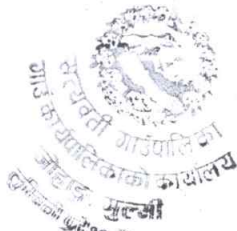 सत्यवती गाउँपालिका
गाउँ कार्यपालिकाको कार्यालय
जोहाङ, गुल्मी